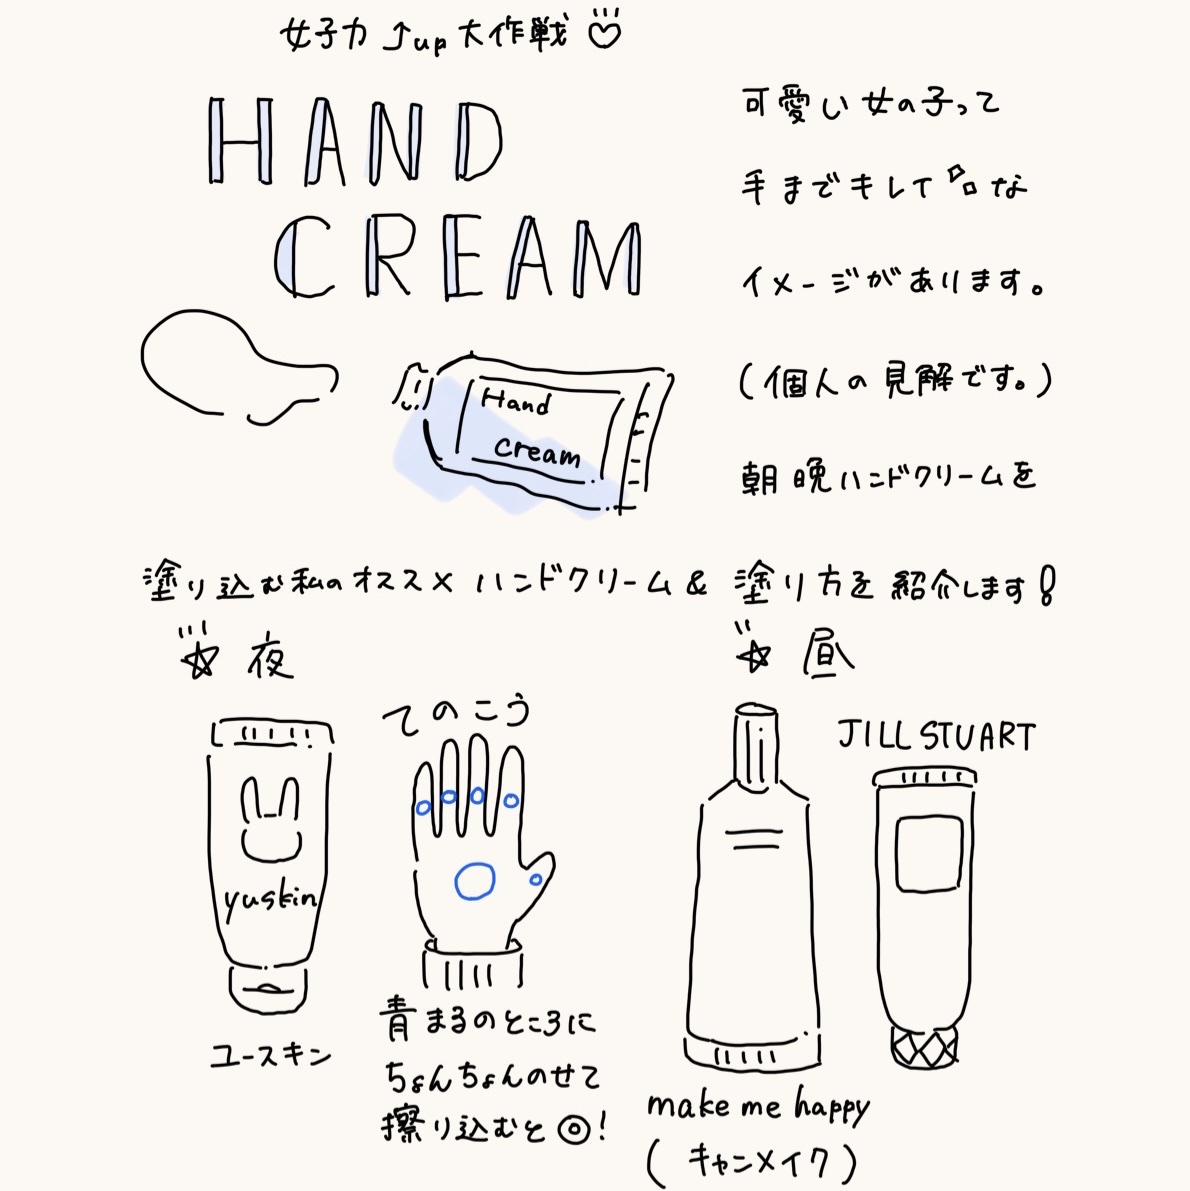 女子力↑up大作戦♡
HAND
CREAM
可愛い女の子って
手までキレイな
イメージがあります。
(個人の見解です。)
朝晩ハンドクリームを
Hand
cream
塗り込む私のオススメハンドクリーム&塗り方を紹介します!
☆夜
てのこう
yuskin
ユースキン
青まるのところに
ちょんちょんのせて
擦り込むと◎!
☆昼
JILL STUART
make me happy
(キャンメイク)